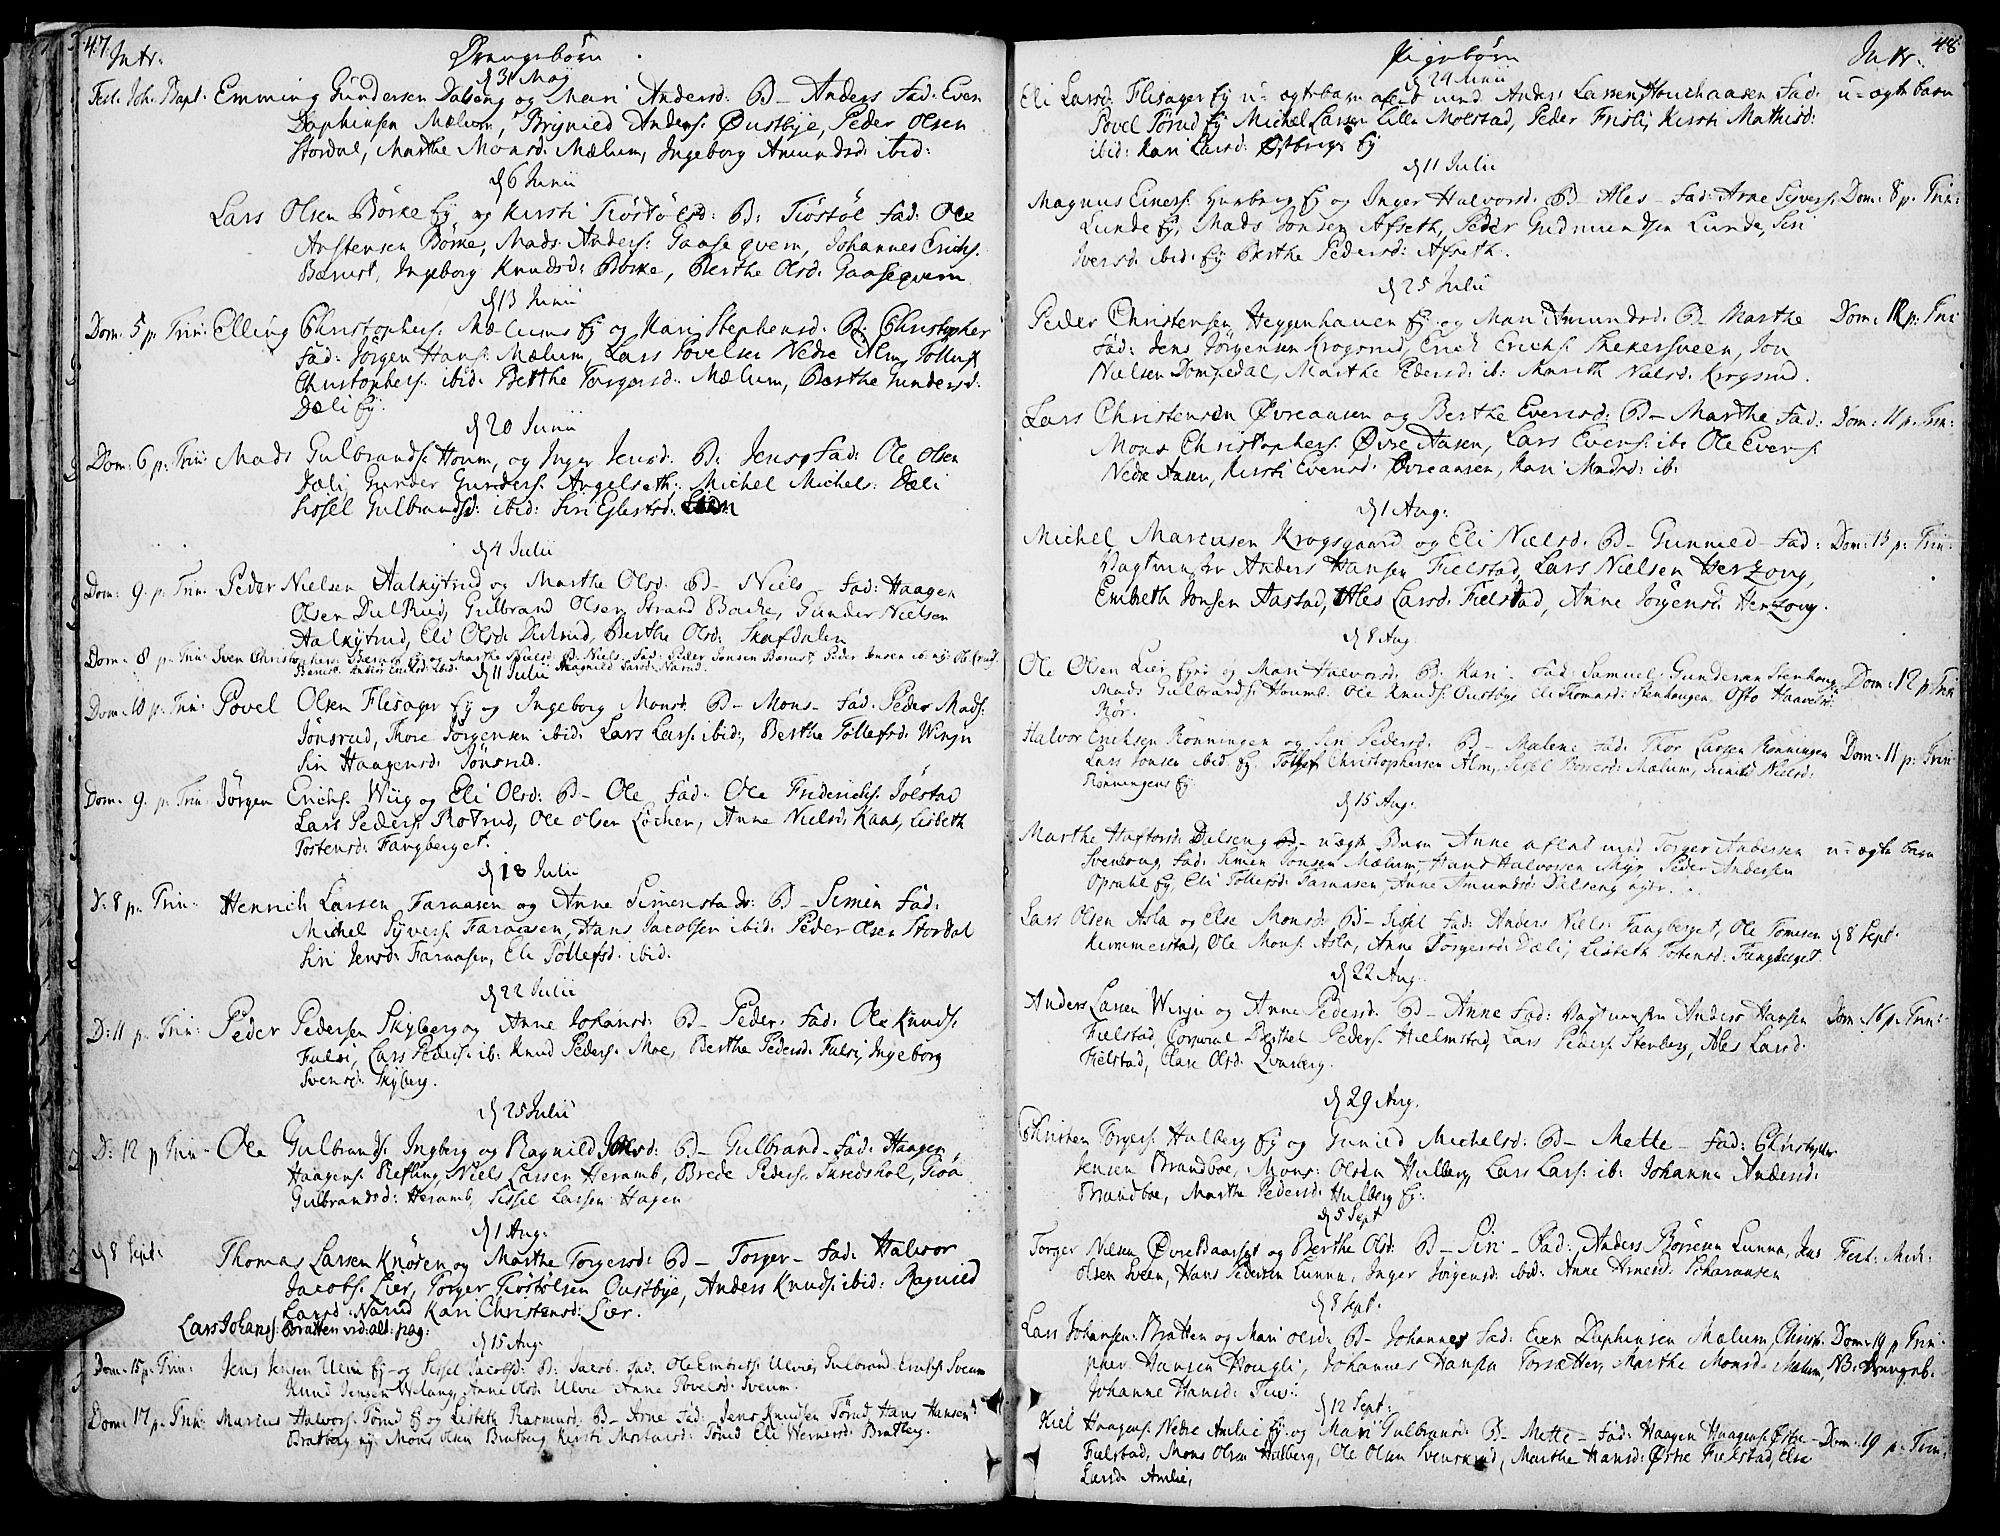 47.
Intr:
Drengebörn
d 31 Maij
Fest. Joh. Bapt. Emming Gundersen Dalseng og Mari Andersd. B– Anders Fad. Even
Daphinsen Mælum, Brynild Anders. Oustbye, Peder Olsen
Stordal, Marthe Monsd. Mælum, Ingeborg Amundsd. ibid:
d 6 Junii
Lars Olsen Börke Ey og Kirsti Tiöstölsd: B: Tiöstöl Fad: Ole
Arstensen Börke, Mads Anders: Gaaseqvern, Johannes Erichs:
Berust, Ingeborg Knudsd: Börke, Berthe Olsd: Gaaseqvern
d 13 Junii
Dom: 5 p. Trin: Elling Christophers: Mælums Ey og Kari Stephensd. B: Christopher
Fad: Jörgen Hans: Mælum, Lars Povelsen Nedre Alm, Tolluf
Christophers: ibid. Berthe Torgersd: Mælum, Berthe Gundersd:
Dæli Ey.
d 20 Junii
Dom: 6 p. Trin: Mads Gulbrands: Houm, og Inger Jensd: B: Jens, Fad: Ole Olsen
Dæli, Gunder Gunders: Angelseth: Michel Michels: Dæli
Sissel Gulbrandsd: ibid: Siri Eglestsd:
d 4 Julii
Dom: 9. p. Trin: Peder Nielsen Aalkijtrud og Marthe Olsd: B– Niels – Fad: Haagen
Olsen Dulrud, Gulbrand Olsen Strand Backe, Gunder Nielsen
Aalkijtrud, Eli Olsd: Dulrud, Berthe Olsd: Skafdalen
Dom: 8 p. Trin: Sven Christophers: Berust Ey og Marthe Nielsd: B. Niels, Fad: Peder Jonsen Berust, Peder Jensen ib.
d 11 Julii
Dom: 10 p. Trin: Povel Olsen Flisager Ey og Ingeborg Monsd: B– Mons – Fad: Peder Mads:
Jönsrud, Thore Jörgensen ibid: Lars Lars: ibid:, Berthe Tollefsd: Winju
Siri Haagensd: Jönsrud.
Dom: 9. p. Trin: Jörgen Erichs: Wiig og Eli Olsd: B– Ole Fad: Ole Friderichs: Jölstad
Lars Peders: Rotrud, Ole Olsen Löchen, Anne Nielsd: Kaas, Lisbeth
Tostensd: Fangberget.
d 18 Julii
D: 8 p. Trin: Henrich Larsen Faraasen og Anne Simenstadr: B– Simen Fad:
Michel Syvers: Faraasen, Hans Jacobsen ibid: Peder Olsen Stordal
Siri Jensd: Faraasen, Eli Tollefsd: ibid.
d 22 Julii
D: 11 p. Trin: Peder Pedersen Skyberg og Anne Johansd: B– Peder: Fad: Ole Knuds:
Fulsi, Lars Peders: ib: Knud Peders: Moe, Berthe Pedersd: Fulsi, Ingeborg
Svensd: Skyberg.
d 25 Julii
D: 12 p Trin: Ole Gulbrands: Ingberg og Ragnild Johsd: B– Gulbrand – Fad: Haagen
Haagens: Refling, Niels Larsen Heramb, Brede Peders: Skredshol, Gioa
Gulbrandsd: Heramb, Sissel Larsen Hagen
d 1 Aug:
d 8 Sept: Thomas Larsen Knösen og Marthe Torgersd: B– Torger – Fad: Halvor
Jacobs: Lier, Torger Tiöstölsen Oustbye, Anders Knuds: ibid: Ragnild
Larsd: Narud Kari Christensd: Lier.
Lars Johans: Bratten vid: alt: pag:
d 15 Aug:
Dom: 15 p. Trin: Jens Jensen Ulvi Ey og Sissel Jacobsd: B: Jacob. Fad: Ole Embrets: Ulve, Gulbrand Erichs: Sveum
Knud Jensen Wælang, Anne Olsd: Ulve Anne Povelsd: Sveum.
Dom: 17 p. Trin: Marius Halvors: Törud Ey og Lisbeth Rasmusd: B– Arne Fad: Jens Knudsen Törud Hans Hansen
Bratberg Ey. Mons Olsen Bratberg Kirsti Mortensd: Törud Eli Wernersd: Bratberg.
Pigebörn
Intr:
48
d 24 Junii
Eli Larsd: Flisager Ey u= ægte barn aflet med Anders Larsen Houchaasen Fad: u= ægte barn
Povel Törud Ey Michel Larsen Lille Molstad, Peder Frisli, Kirsti Mathisd:
ibid: Kari Larsd: Ey
d 11 Julii
Magnus Einers: Ey og Inger Halvorsd: B– Ales – Fad: Arne Syvers: Dom: 8 p. Trin:
Lunde Ey, Mads Jonsen Afseth, Peder Gudmundsen Lunde, Siri
Iversd: ibid: Ey Berthe Pedersd: Afseth.
d 25 Julii
Peder Christensen Heggenhauen Ey og Mari Amundsd: B– Marthe Dom: 12 p: Trin
Fad: Jens Jörgensen Krogsrud, Erich Erichs: Skekersveen, Jon
Nielsen Dompedal, Marthe Pedersd: ib: Marith Nielsd: Krogsrud.
Lars Christensen Övreaasen og Berthe Evensd: B– Marthe Fad: Dom: 11 p. Trin:
Mons Christophers: Övre Aasen, Lars Evens: ib: Ole Evens:
Nedre Aasen, Kirsti Evensd: Övreaasen, Kari Madsd: ib:
d 1 Aug:
Michel Marcusen Krogsgaard og Eli Nielsd: B– Gunnild – Fad: Dom: 15 p. Trin:
Vagtmester Anders Hansen Fielstad, Lars Nielsen Herzoug,
Embreth Jonsen Aastad, Ales Larsd: Fielstad, Anne Jörgensd: Herzoug.
d 8 Aug
Ole Olsen Lier Eyer og Mari Halvorsd: B: Kari – Fad: Samuel Gundersen Stenhoug Dom: 12 p Trin
Mads Gulbrands: Houml: Ole Knuds: Oustbye Eli Thomasd: Stenhougen, Oste Haavelsd:
Rör.
Halvor Erichsen Rönningen og Siri Pedersd: B– Malene Fad: Thor Larsen Rönningen Dom: 11 p: Trin
Lars Jonsen ibid Ey. Tollef Christophersen Alm, Sissel Mælum, Gunild Nielsd:
Rönningens Ey.
d 15 Aug:
Marthe Haftorsd: Dalseng B– uægte Barn Anne aflat med Torger Andersen u= ægte barn
Svenskrug, Fad: Simen Jonsen Mælum, Halvorsen Myr, Peder Andersen
Opsahl Ey, Eli Tollefsd: Faraasen, Anne Amundsd: Dalseng
Lars Olsen Asla og Else Monsd: B– Sissel Fad: Anders Niels: Fangberget, Ole Tomesen d 8 Sept.
Kemmerstad, Ole Mons: Asla, Anne Torgersd: Dæli, Lisbeth Tostensd: Fangberget.
d 22 Aug:
Anders Larsen Winju og Anne Pedersd: B– Anne Fad: Vagtmester Anders Hansen Dom: 16 p. Trin:
Fielstad, Corporal Berthel Peders: Hielmstad, Lars Peders: Stenberg, Ales Larsd:
Fielstad, Clare Olsd: Qvarberg.
d 29 Aug.
Christen Torgers: Hulberg Ey og Gunild Michelsd: B– Mette – Fad: Christopher
Jensen Brandboe, Mons: Olsen Hulberg, Lars Lars: ib: Johanna Andersd:
Brandboe, Marthe Pedersd: Hulberg Ey:
d 5 Sept
Torger Nilsen Övre Baarset og Berthe Olsd: B– Siri – Fad: Anders Börresen Lunna, Jens Fest: Mich:
Olsen Sveen, Hans Pedersen Lunna, Inger Jörgensd: ibid: Anne Arnesd: Scharaasen
d 8 Sept:
Lars Johansen: Bratten og Mari Olsd: B– Johannes Fad: Even Daphinsen Mælum, Christo- Dom: 19 p Trin:
pher Hansen Kougli, Johannes Hansen Torsætter, Marthe Monsd: Mælum, NB: Drengeb:
Johanne Hansd:
d 12 Sept:
Kiel Haagens: Nedre Amlie Ey og Mari Gulbransd: B– Mette – Fad: Haagen Haagens: Östre Dom: 19 p. Trin:
Fielstad, Mons Olsen Hulberg, Ole Olsen Svensrud, Marthe Hansd: Östre Fielstad, Else
Larsd: Amlie,